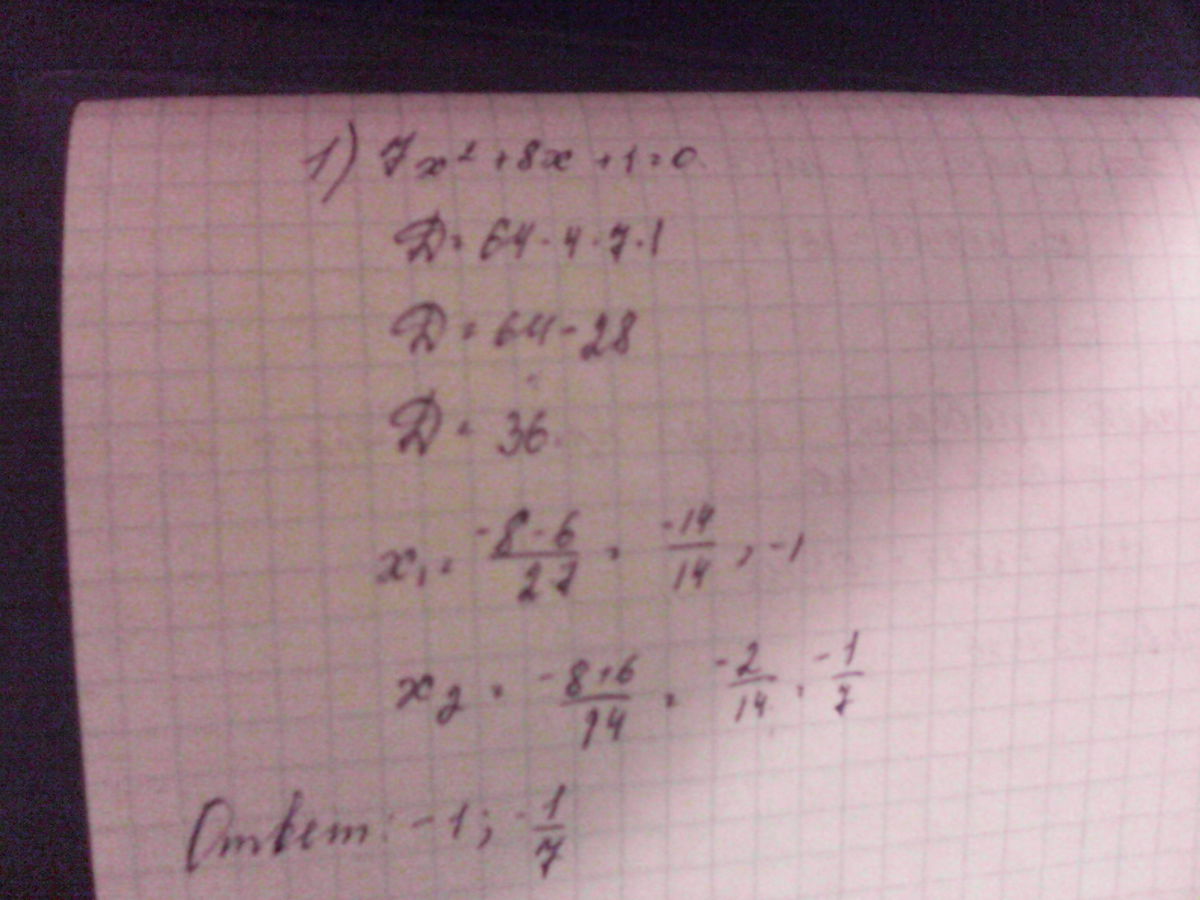 1) 7x² + 8x + 1 = 0
D = 64 - 4 · 7 · 1
D = 64 - 28
D = 36.
x₁ = -8 - 6 / 2·7 = -14 / 14 = -1
x₂ = -8 + 6 / 14 = -2 / 14 = -1 / 7
Ответ: -1; -1 / 7